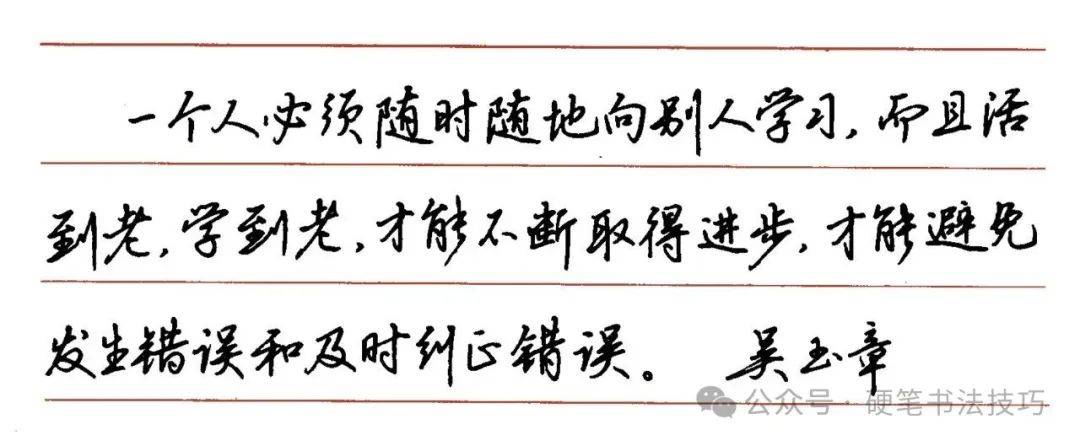 一个人必须随时随地向别人学习,而且活
到老,学到老,才能不断取得进步,才能避免
发生错误和及时纠正错误。 吴玉章
公众号·硬笔书法技巧